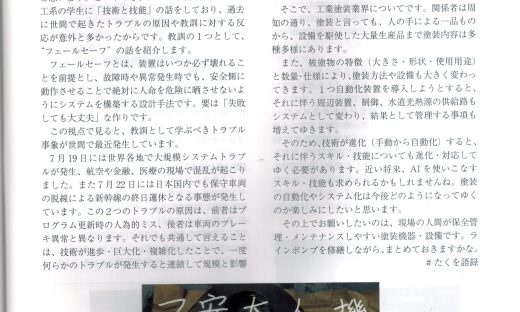 工系の学生に「技術と技能」の話をしており、過去
に世間で起きたトラブルの原因や教訓に対する反
応が意外と多かったからです。教訓の1つとして、
“フェールセーフ”の話を紹介します。
フェールセーフとは、装置はいつか必ず壊れるこ
とを前提とし、故障時や異常発生時でも、安全側に
動作させることで絶対に人命を危険に晒さないよ
うにシステムを構築する設計手法です。要は「失敗
しても大丈夫」な作りです。
この視点で見ると、教訓として学ぶべきトラブル
事象が世間で最近発生しています。
7月19日には世界各地で大規模システムトラブ
ルが発生、航空や金融、医療の現場で混乱が起こり
ました。また7月22日には日本国内でも保守車両
の脱線による新幹線の終日運休となる事態が発生し
ています。この2つのトラブルの原因は、前者はプ
ログラム更新時の人為的ミス、後者は車両のブレー
キ異常と異なります。それでも共通して言えること
は、技術が進歩・巨大化・複雑化したことで、一度
何らかのトラブルが発生すると連鎖して規模と影響
そこで、工業塗装業界についてです。関係者は周
知の通り、塗装と言っても、人の手による一品もの
から、設備を駆使した大量生産品まで塗装内容は多
種多様にあります。
また、被塗物の特徴（大きさ・形状・使用用途）
と数量・仕様により、塗装方法や設備も大きく変わっ
てきます。1つ自動化装置を導入しようとすると、
それに伴う周辺装置、制御、水道光熱源の供給路も
システムとして変わり、結果として管理する事項も
増えてゆきます。
そのため、技術が進化（手動から自動化）すると、
それに伴うスキル・技能についても進化・対応して
ゆく必要があります。近い将来、AIを使いこなす
スキル・技能も求められるかもしれませんね。塗装
の自動化やシステム化は今後どのようになってゆく
のか楽しみにしたいと思います。
その上でお願いしたいのは、現場の人間が保全管
理・メンテナンスしやすい塗装機器・設備です。ラ
インポンプを修繕しながら、まとめておきますかな。
#たくを語録